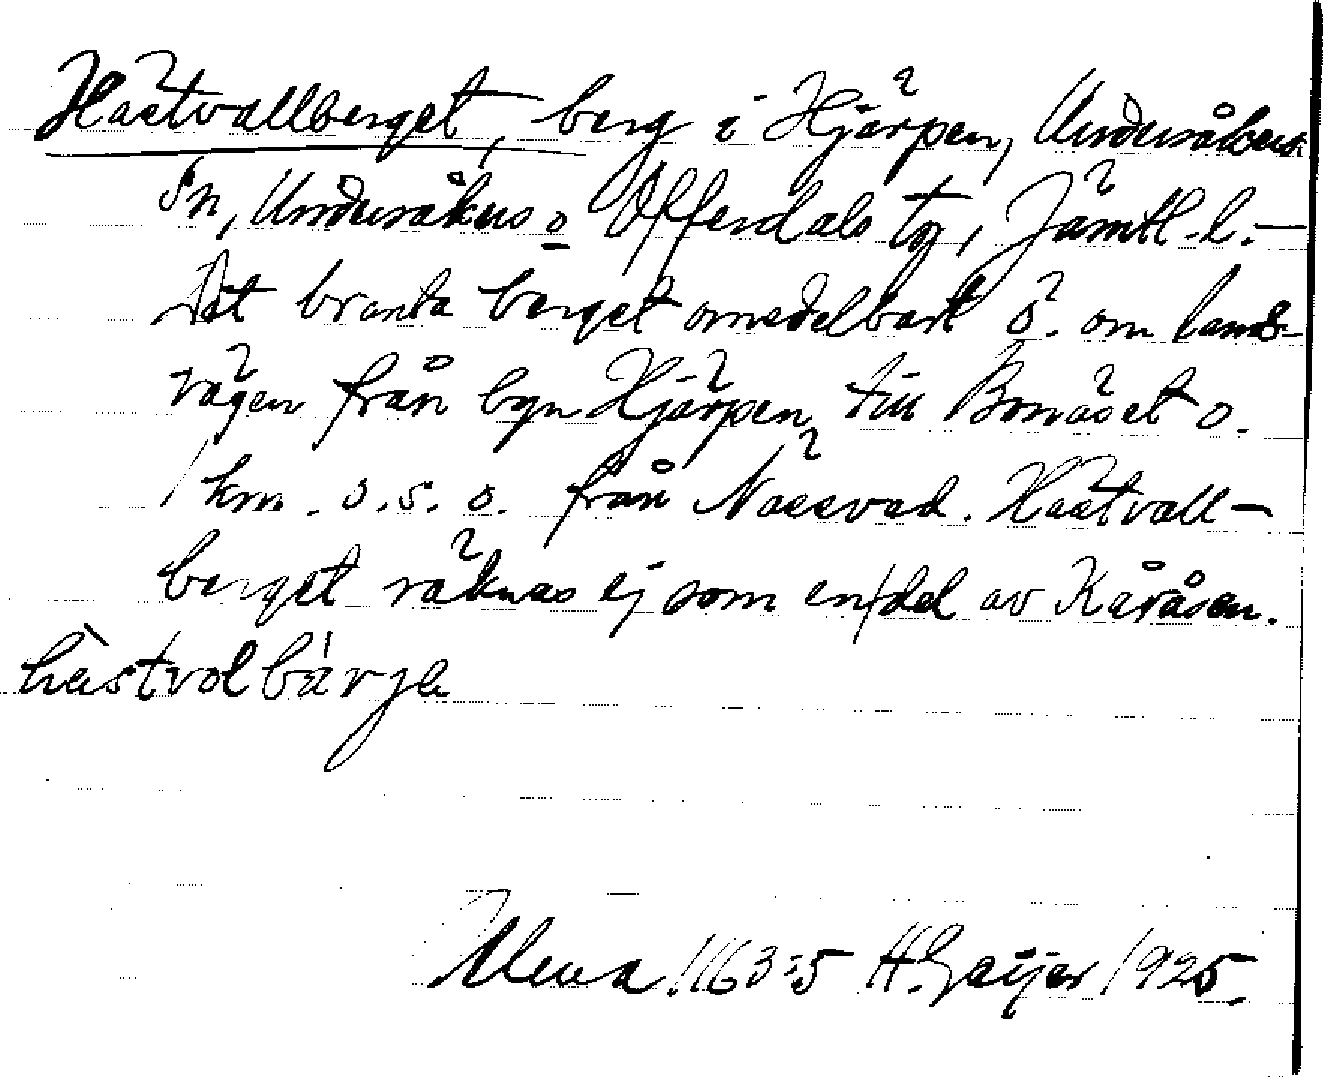 Hästvallberget, berg i Hjärpen, Undersåkers
sn, Undersåkers o Offerdals tg, Jämtl. l. –
Det branta berget omedelbart ö. om lands-
vägen från byn Hjärpen till Bonäset o.
1 km. o.s.o. från Näsevad. Hästvall-
berget räknas ej som en del av Kåråsen.
hästvolbärje
163:5 H. Geijer 1925.